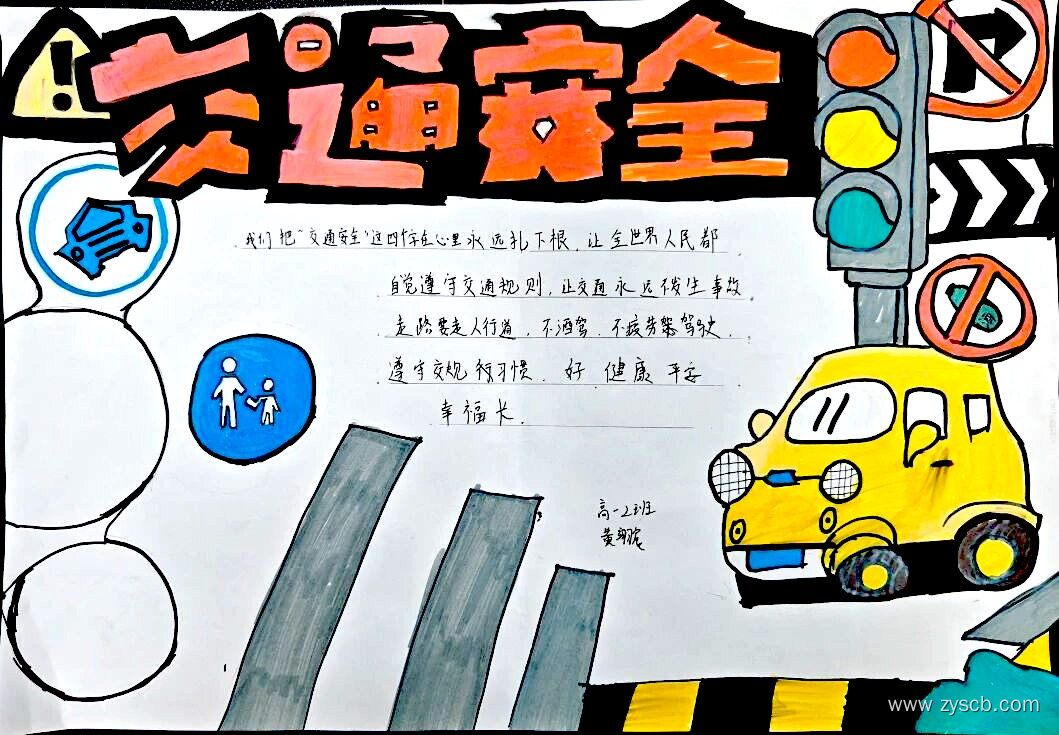 交通安全
我们把“交通安全”这四个字在心里永远扎下根，让全世界人民都
自觉遵守交通规则，让交通永远不发生事故
走路要走人行道，不酒驾，不疲劳驾驶
遵守交规 好习惯，好 健康 平安
幸福长.
高一2班
www.zyscb.com